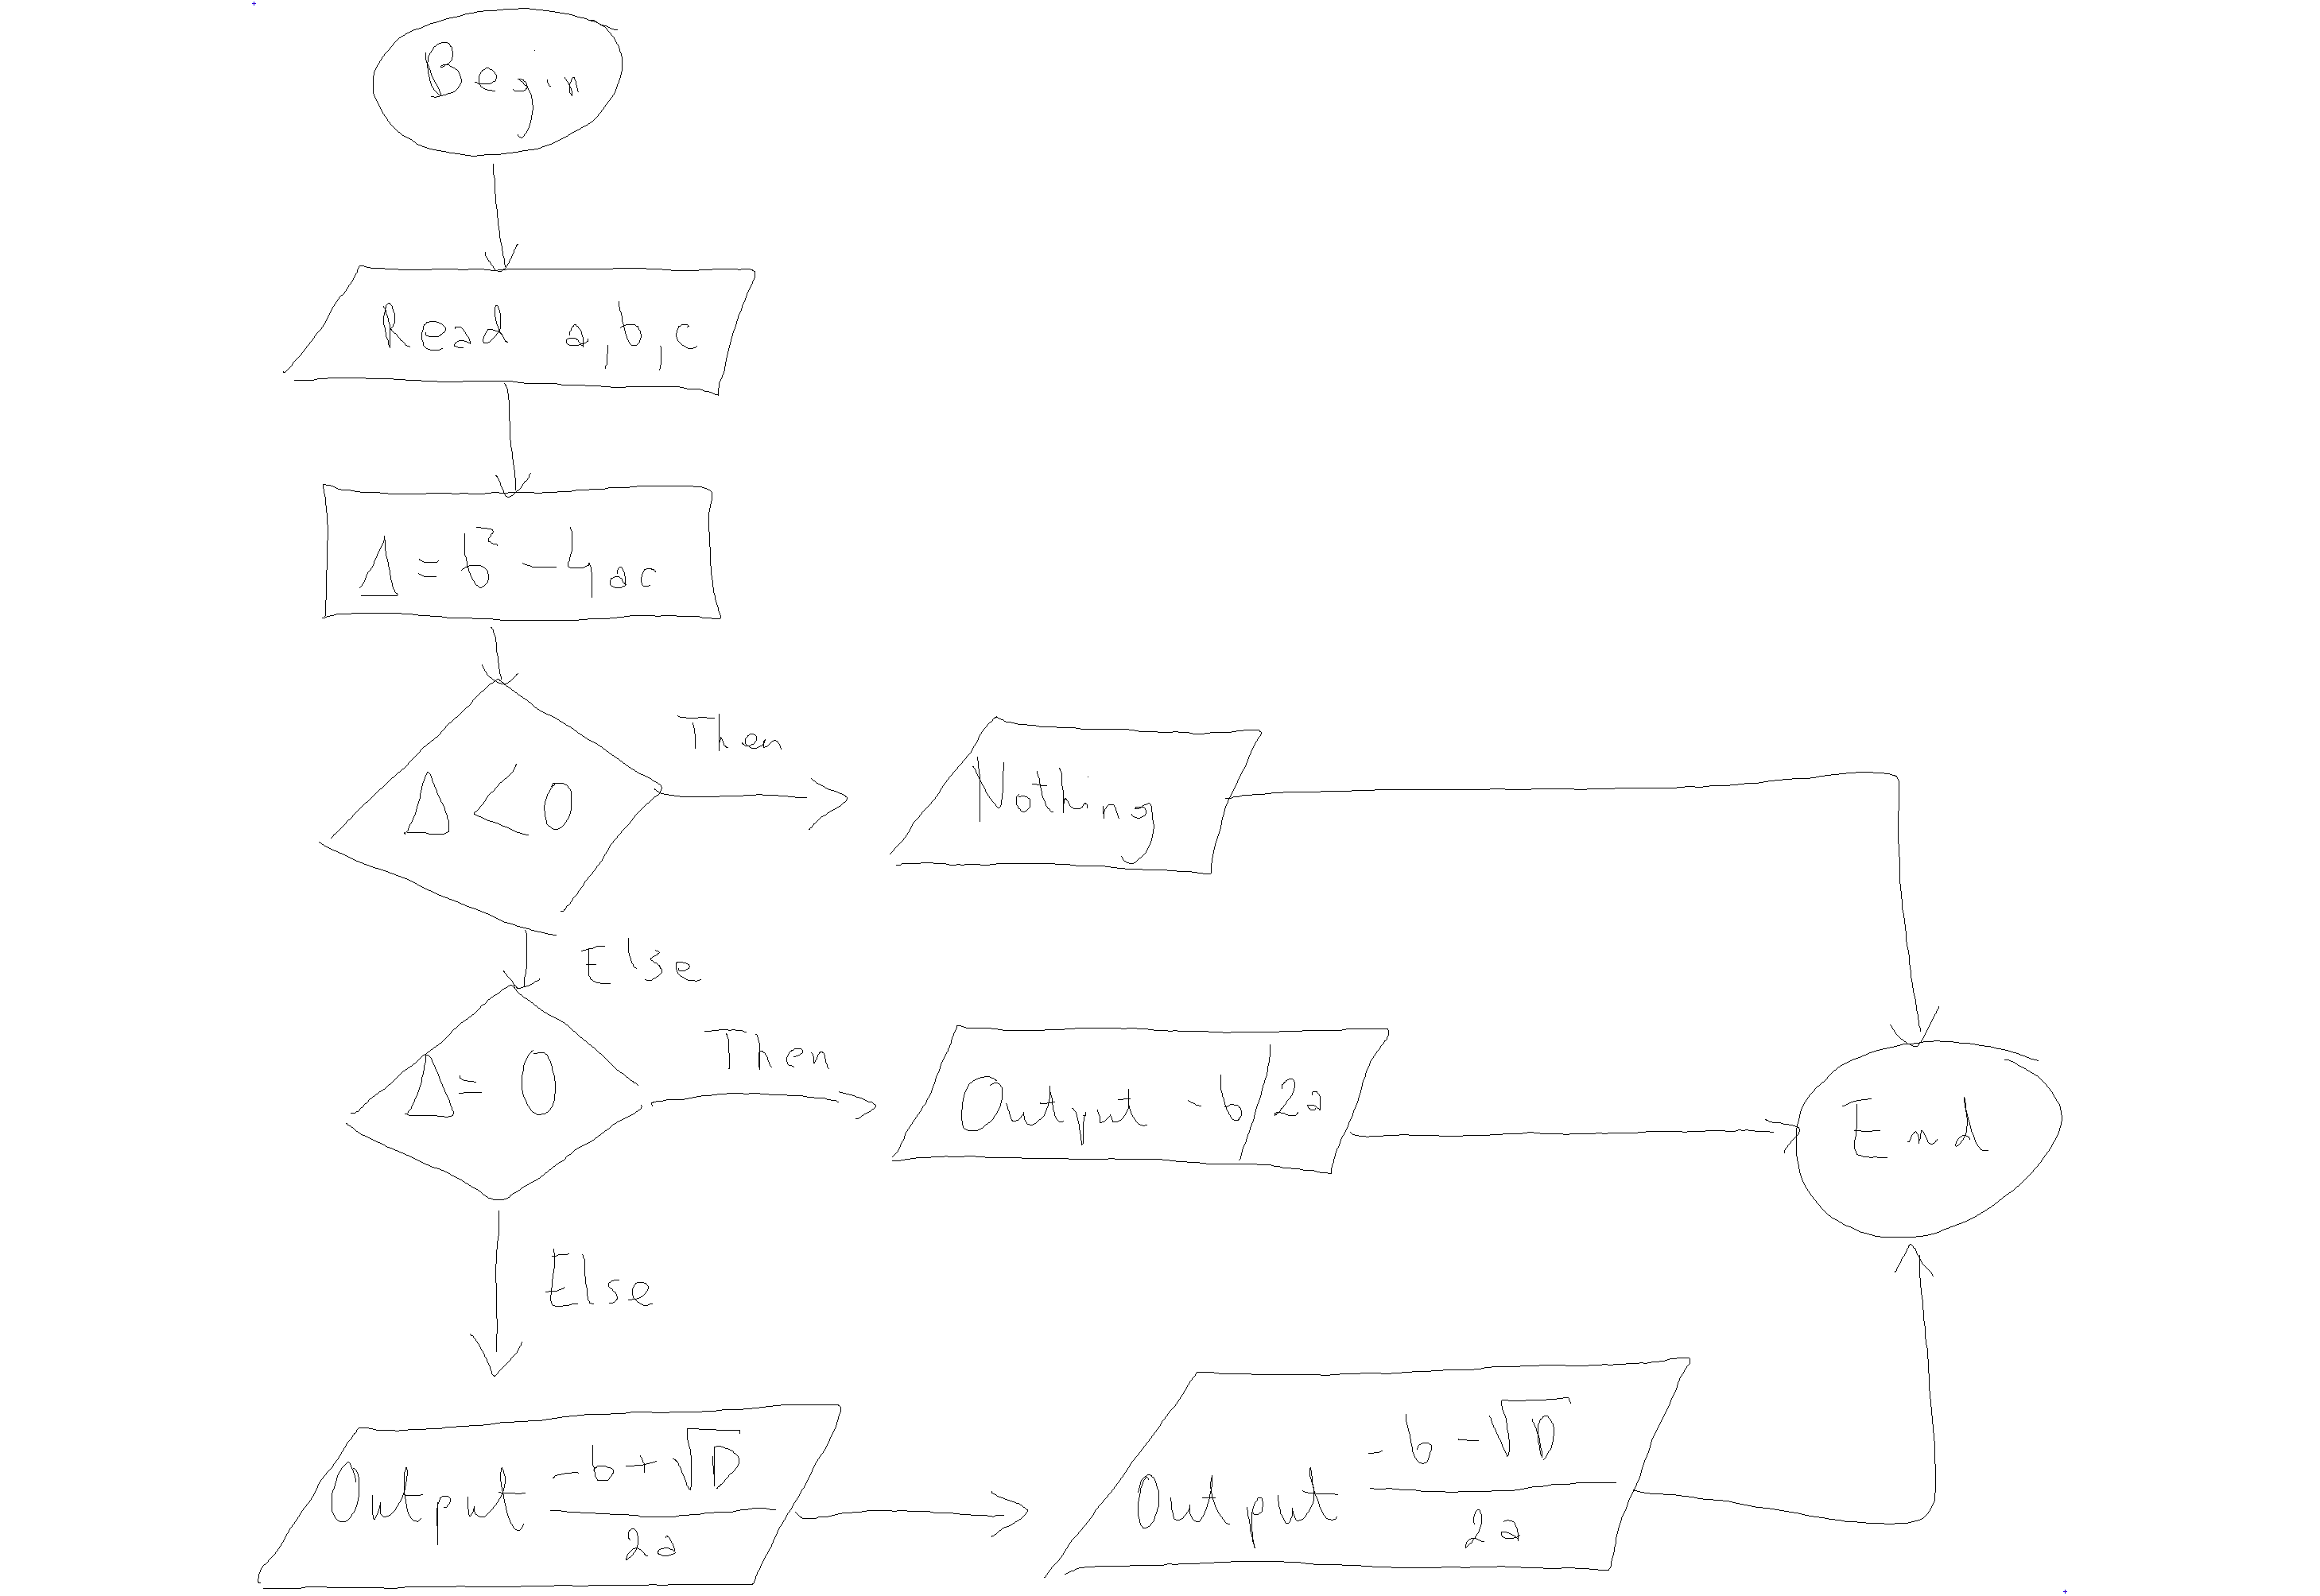 Begin
Read a, b, c
Δ = b² - 4ac
Δ < 0
Then
Nothing
Else
Δ = 0
Then
Output -b/2a
End
Else
Output (-b + √D)/2a
Output (-b - √D)/2a